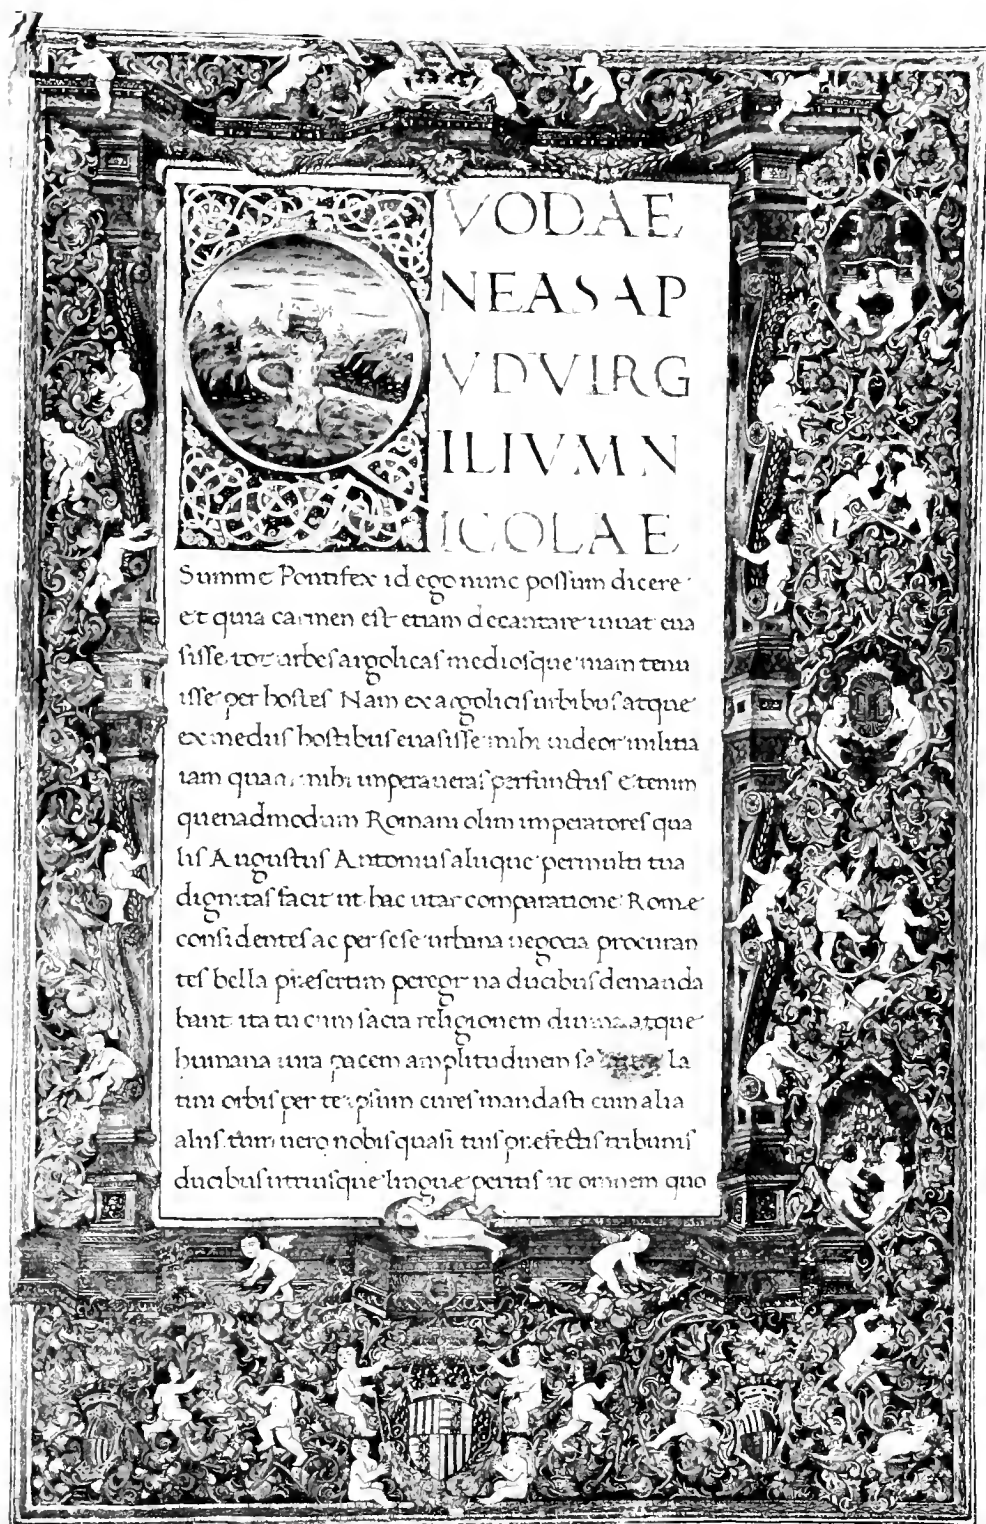 VODAE
NEAS AP
VD VIRG
ILIVM N
ICOLAE
Summe Pontifex id ego nunc possum dicere
et quia carmen est etiam decantare iuuat eua
sisse tot urbes argolicas mediosque uiam tenu
isse per hostes Nam ex argolicis urbibus atque
ex mediis hostibus euasisse mihi uideor militia
iam quam mihi imperaueras perfunctus Etenim
quenadmodum Romani olim imperatores qua
lis Augustus Antonius aliique permulti tua
dignitas facit ut hac utar comparatione Romæ
considentes ac per sese urbana negocia procuran
tes bella præsertim peregrina ducibus demanda
bant ita tu cum sacra religionem diuina atque
humana iura pacem amplitudinem la
tini orbis per te ipsum cures mandasti cum alia
aliis tum uero nobis quasi tuis præfectis tribunis
ducibus utriusque linguæ peritis ut omnem quo